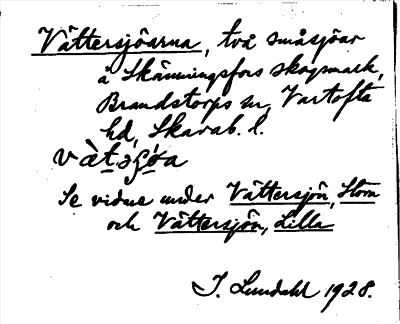 Vättersjöarna, två småsjöar
å Skämningsfors skogsmark,
Brandstorps sn, Vartofta
hd, Skarab. l.
Se vidare under Vättersjön, Stora
och Vättersjön, Lilla
J. Lundahl 1928.